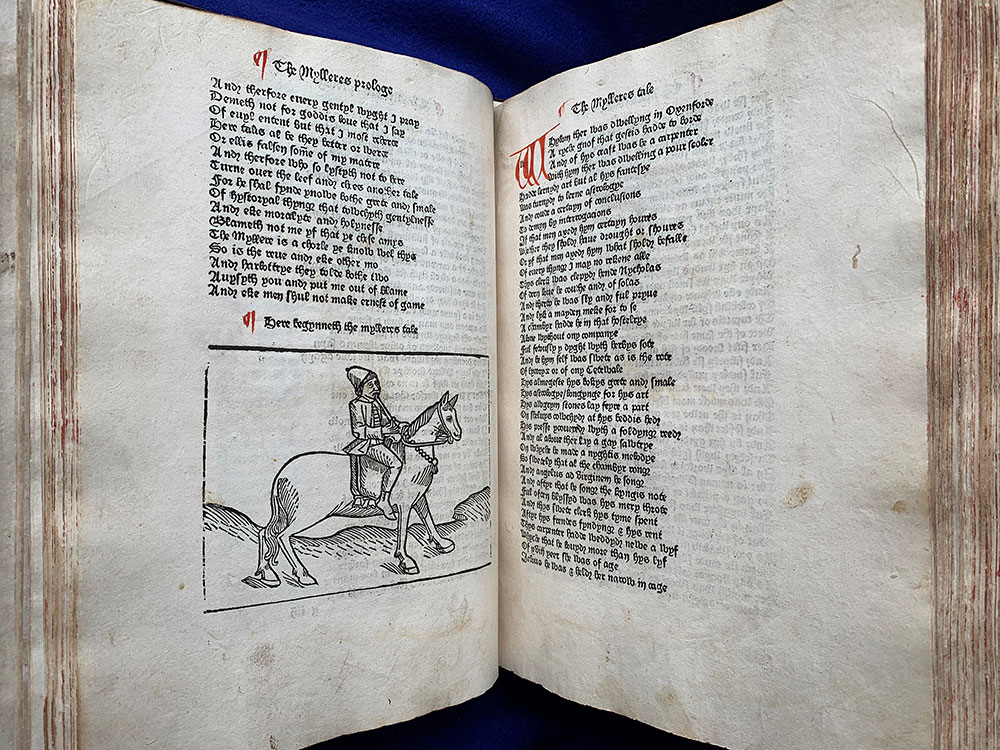 The Mylleres prologe
And therfore euery gentyl wyght I pray
Demeth not for goddis loue that I say
Of euyl entent but that I most reherce
Here talis al be they better or werce
Or ellis falsen some of my matere
And therfore who so lystyth not to here
Turne ouer the leef and chese another tale
For he shal fynde ynowe bothe grete and smale
Of hystoryal thyng that towchyth gentylnesse
And eke moralyte and holynesse
Blameth not me yf that ye chese amys
The Myllere is a chorle ye know wel thys
So is the reue and eke other mo
And harlottrye they tolde bothe two
Auysyth you and put me out of blame
And eke men shul not make ernest of game
Here begynneth the mylleres tale
The Mylleres tale
Whylom ther was dwellyng in Oxenforde
A ryche gnof that gestis hadde to borde
And of hys craft was he a carpenter
With hym ther was dwellyng a pour scoler
Hadde lernyd art but al hys fantesye
Was turnyd to lerne astrologye
And coude a certayn of conclusions
To demyn by interrogacions
If that men axed hym certayn houres
Whether they sholde haue drought or shoures
Or yf that men axed hym what sholde befalle
Of euery thynge I may not rekene alle
Thys clerk was clepyd hende Nycholas
Of dern loue he couthe and of solas
And therto he was sly and ful pryue
And lyk a mayden meke for to se
A chambyr hadde he in that hostelrye
Alone wythout ony companye
Ful fetously y dyght wyth herbys sote
And he hym self was swete as is the rote
Of lycorys or of ony Cetewale
Hys almegeste hys bokys grete and smale
Hys astrologye longynge for hys art
Hys augrym stones lay feyre a part
On sheluys cowchyd at hys beddis hed
Hys presse ycoueryd wyth a foldyng reed
And al aboue ther lay a gay sawtrye
On whyche he made a nyghtis melodye
So swetely that al the chambyr rong
And angelus ad virginem he songe
And aftyr that he songe the kyngis note
Ful oftyn blyssyd was hys mery throte
And thys swete clerk hys tyme spent
Aftyr hys frendes fyndynge & hys rent
Thys carpenter hadde weddyd newe a wyf
Whyche that he louyd more than hys lyf
Of yeer she was of age
Jelous he was & held her narow in cage